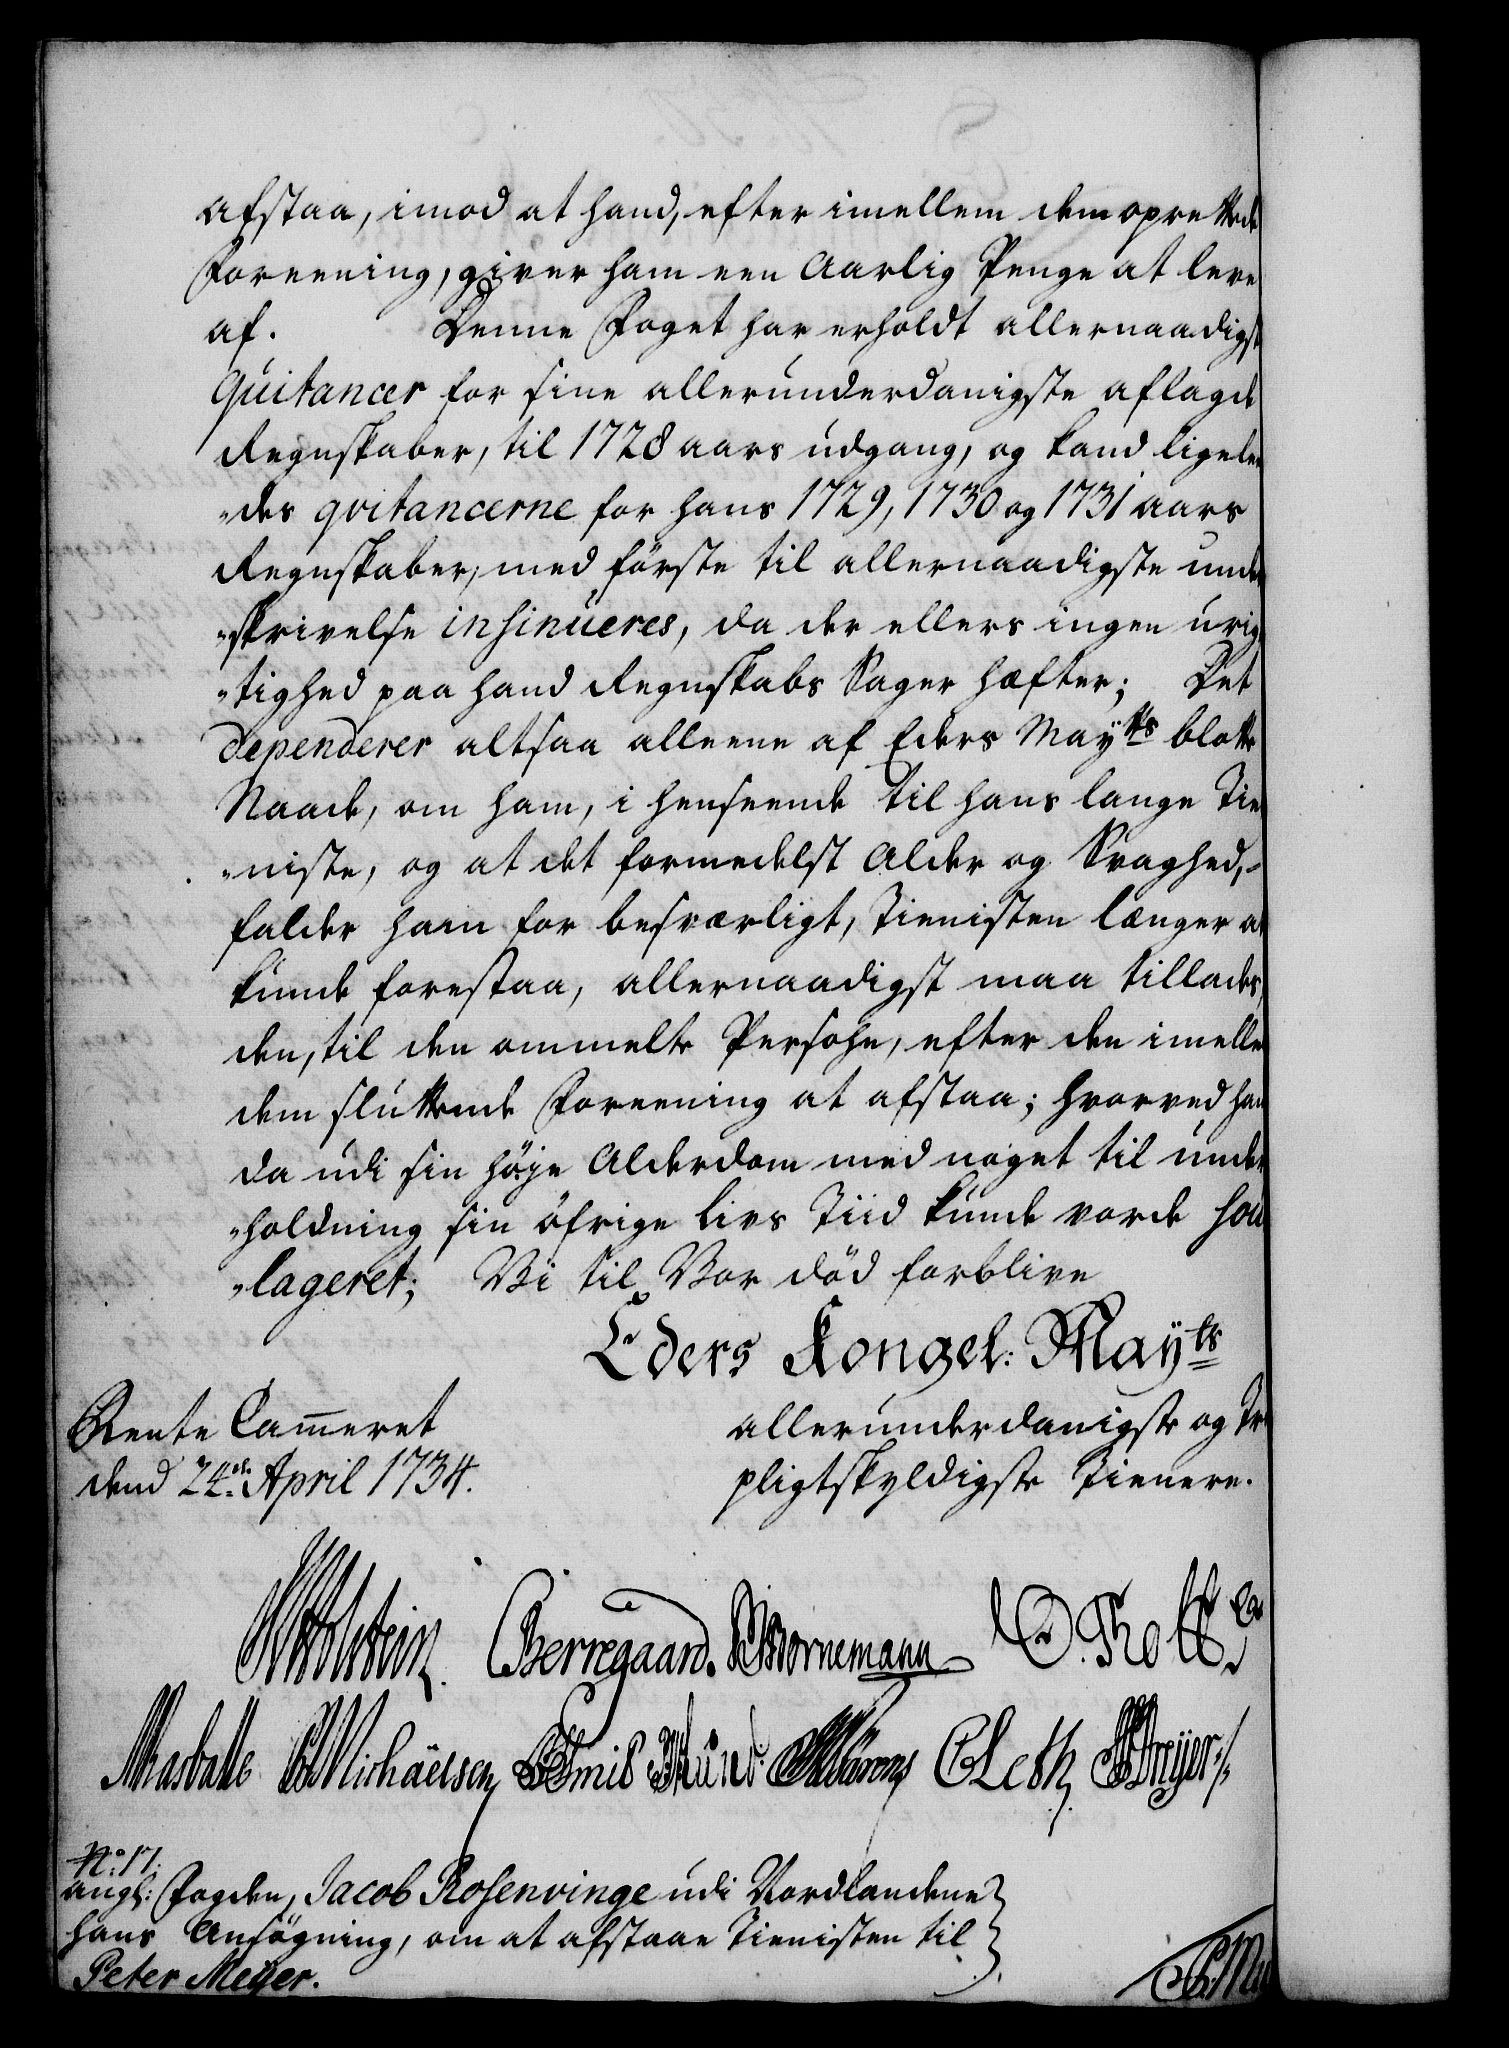 afstaa, imod at hand, efter imellem dem oprettede
Foreening, giver ham een Aarlig Penge at leve
af. Denne Foget har erholdt allernaadigst
Quitancer for sine allerunderdanigste aflagde
Regnskaber, til 1728 aars udgang, og kand ligele-
"des qvitancerne for hans 1729, 1730 og 1731 aars
Regnskaber, med förste til allernaadigste under
"skrivelse insinueres, da der ellers ingen urig
"tighed paa hand Regnskabs Sager hæfter; Det
dependerer altsaa alleene af Eders Mayts blotte
Naade, om ham, i henseende til hans lange Tie
"niste, og at det formedelst Alder og Svaghed,
falder ham for besværligt, Tienisten længer at
kunde forestaa, allernaadigst maa tillades,
den, til den ommelte Persohn, efter den imellem
dem sluttende Foreening at afstaa; hvorved hand
da udi sin höje Alderdom med noget til under
"holdning sin öfrige livs Tiid kunde vorde sou
"lageret; Vi til Vor död forblive
Eders Kongel: Mayts
Rente Cammeret
dend 24de April 1734.
allerunderdanigste og Tro
pligtskyldigste Tienere.
Holstein. Berregaard. Bornemann O. Thott
Masbatle Michäelsen Smit Munt CLeth Dreÿer
No: 17.
angl: Fogden, Jacob Rosenvinge udi Nordlandene
hans Ansögning, om at afstaae Tienisten til
Peter Meÿer.